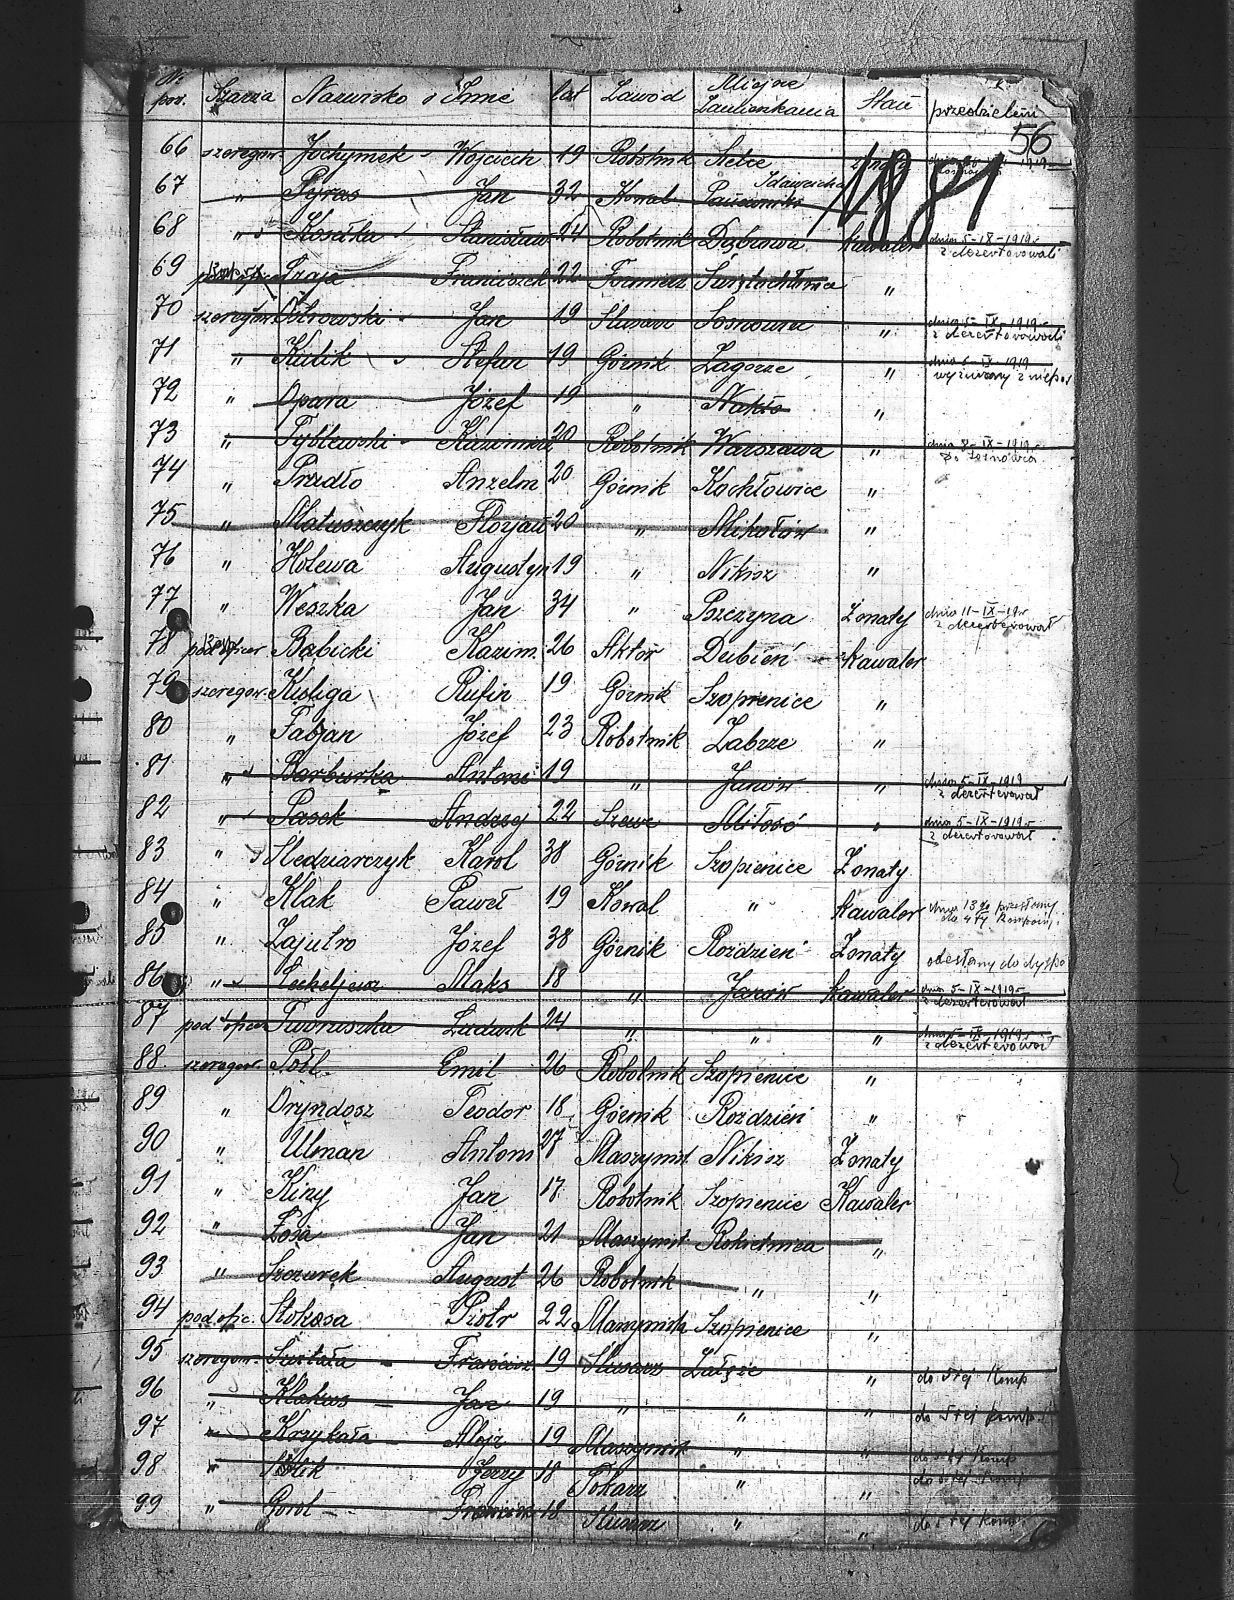 Nr. poz. Szarża Nazwisko i Imię lat Zawód Miejsce Zamieszkania Stan przedzieleni
56
1881
66 szeregow. Jochymek Wojciech 19 Robotnik
67 " Pyras Jan 32 Kowal
68 " Kosałka Stanisław 24 Robotnik Dąbrowa kawaler dnia 5-IX-1919 z dezertorowali
69 Szaja Franciszek 22 Formierz Świętochłowice "
70 szeregow. Ostrowski Jan 19 Slusarz Sosnowice " dnia 5-IX-1919 z dezertorowali
71 " Kulik Stefan 19 Górnik Zagorze "
72 " Opara Józef 19 " Nakło "
73 " Tyblewski Kazimierz 20 Robotnik Warszawa " dnia 8-IX-1919
74 " Pradło Anzelm 20 Górnik Kochłowice "
75 " Matuszczyk Florjan 20 " Mikołów "
76 " Holewa Augustyn 19 " Nikisz "
77 " Weszka Jan 34 " Pszczyna Żonaty dnia 11-IX-19 z dezerterował
78 podoficer Babicki Kazim. 26 Aktor Dubień kawaler
79 szeregow. Kuliga Rufin 19 Górnik Szopienice "
80 " Fabjan Józef 23 Robotnik Zabrze "
81 " Barburka Antoni 19 " Janów " dnia 5-IX-1919 z dezerterował
82 " Pasek Andrzej 22 Szewc Miłość " dnia 5-IX-1919 z dezertorował
83 " Sledziarczyk Karol 38 Górnik Szopienice Żonaty
84 " Klak Paweł 19 Kowal " kawaler
85 " Zajutro Józef 38 Górnik Rozdzień Żonaty odesłany do dyspo
86 " Maks 18 " Janów kawaler dnia 5-IX-1919 z dezerterował
87 pod oficer Tworuszka Ludwik 24 " " " dnia 5-IX-1919 z dezerterował
88 szeregow. Poil. Emil 26 Robotnik Szopienice "
89 " Dryndosz Teodor 18 Górnik Rozdzień "
90 " Ulman Antoni 27 Maszynist. Nikisz Żonaty
91 " Kiny Jan 17 Robotnik Szopienice Kawaler
92 " Łosa Jan 21 Maszynist Rokietnica "
93 " Szczurek August 26 Robotnik " "
94 podofic. Stokosa Piotr 22 Maszynista Szopienice "
95 szeregow. Świtała Francisz. 19 Slusarz Załęże " do 5tej Komp
96 " Klakus Jan 19 " " " do 5tej komp
97 " Krzykała Alojz 19 Maszynik " " Komp
98 " Jerzy 18 Tokarz " " Komp
99 " Gorol Francisz 18 Slusarz " " do 5tej Komp.